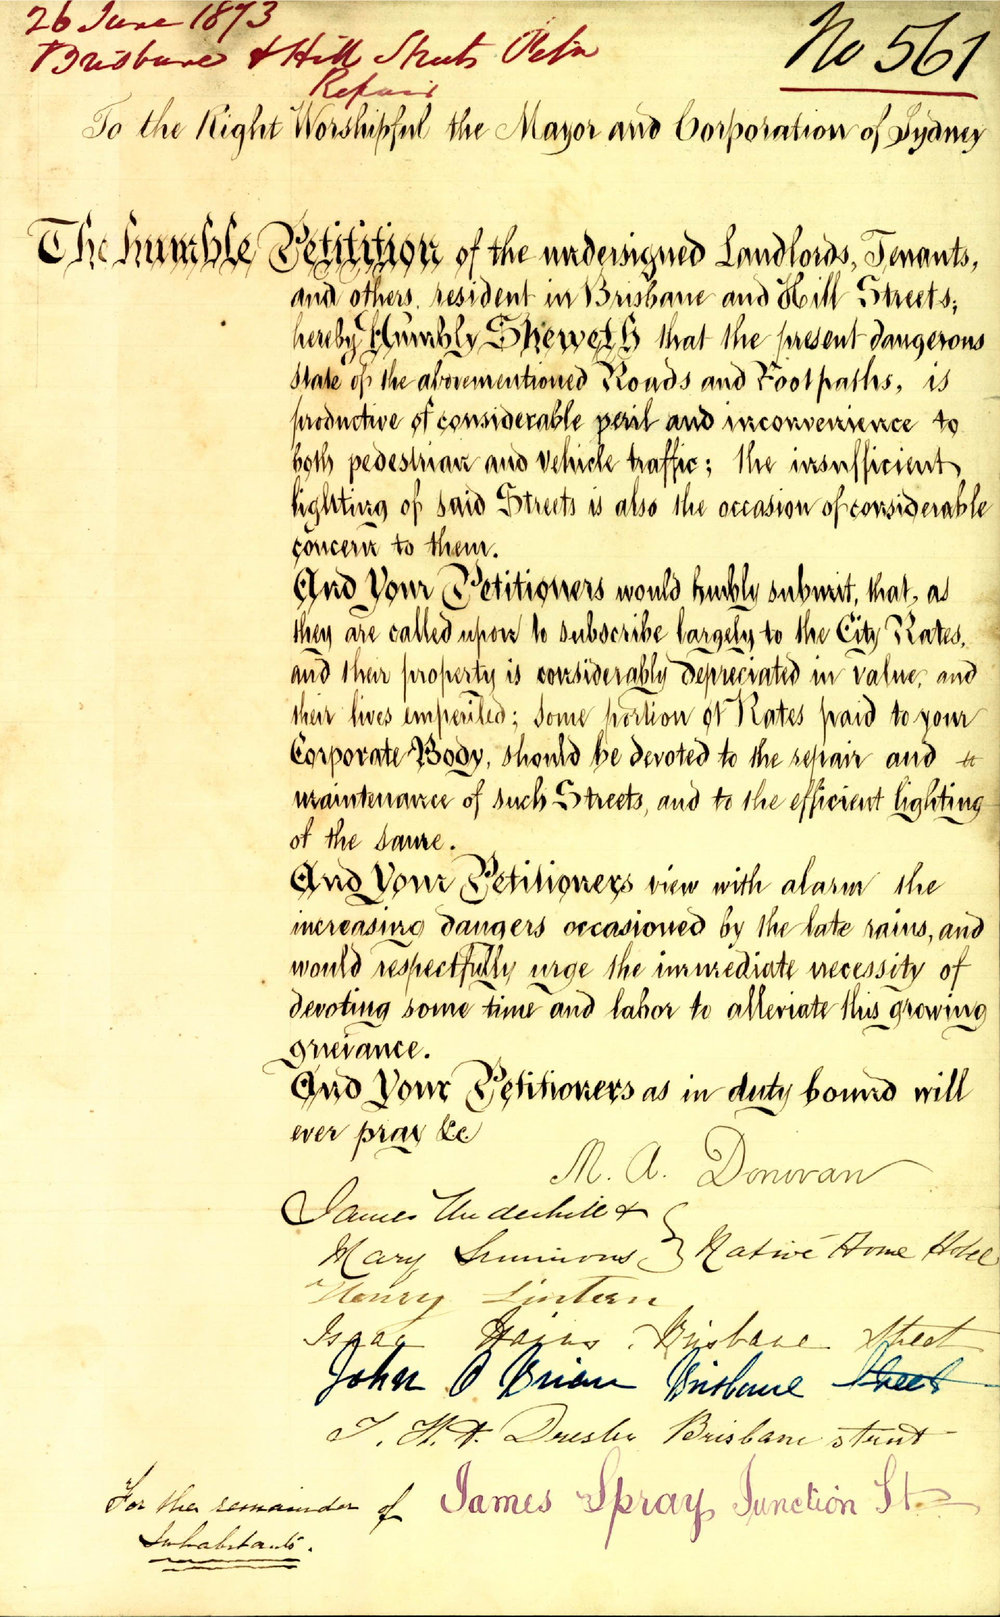 26 June 1873
No 561
Brisbane & Hill Streets
Repair
To the Right Worshipful the Mayor and Corporation of Sydney
The humble Petition of the undersigned Landlords, Tenants,
and others, resident in Brisbane and Hill Streets;
hereby Humbly Sheweth that the present dangerous
state of the abovementioned Roads and Footpaths, is
productive of considerable peril and inconvenience to
both pedestrian and vehicle traffic; the insufficient
lighting of said Streets is also the occasion of considerable
concern to them.
And Your Petitioners would humbly submit, that, as
they are called upon to subscribe largely to the City Rates,
and their property is considerably depreciated in value, and
their lives emperiled; some portion of Rates paid to your
Corporate Body, should be devoted to the repair and
maintenance of such Streets, and to the efficient lighting
of the same.
And Your Petitioners view with alarm the
increasing dangers occasioned by the late rains, and
would respectfully urge the immediate necessity of
devoting some time and labor to alleviate this growing
grievance.
And Your Petitioners as in duty bound will
ever pray &c
M. A. Donovan
James Underhill &
Mary Simmons } Native Home Hotel
Henry Lintern
Isaac Brisbane Street
John O Brian Brisbane Street
Brisbane street
For the remainder of James Spray Junction St
Inhabitants.